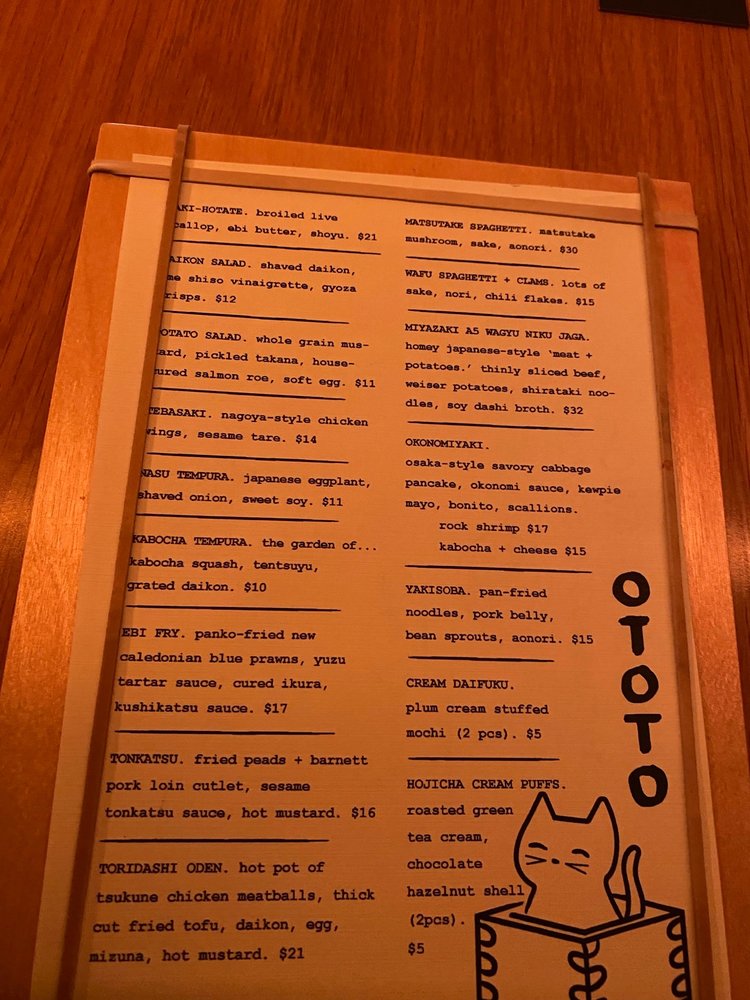 AKI-HOTATE. broiled live
callop, ebi butter, shoyu. $21
AIKON SALAD. shaved daikon,
me shiso vinaigrette, gyoza
risps. $12
OTATO SALAD. whole grain mus-
ard, pickled takana, house-
ured salmon roe, soft egg. $11
TEBASAKI. nagoya-style chicken
wings, sesame tare. $14
NASU TEMPURA. japanese eggplant,
shaved onion, sweet soy. $11
KABOCHA TEMPURA. the garden of...
kabocha squash, tentsuyu,
grated daikon. $10
EBI FRY. panko-fried new
caledonian blue prawns, yuzu
tartar sauce, cured ikura,
kushikatsu sauce. $17
TONKATSU. fried peads + barnett
pork loin cutlet, sesame
tonkatsu sauce, hot mustard. $16
TORIDASHI ODEN. hot pot of
tsukune chicken meatballs, thick
cut fried tofu, daikon, egg,
mizuna, hot mustard. $21
MATSUTAKE SPAGHETTI. matsutake
mushroom, sake, aonori. $30
WAFU SPAGHETTI + CLAMS. lots of
sake, nori, chili flakes. $15
MIYAZAKI A5 WAGYU NIKU JAGA.
homey japanese-style 'meat +
potatoes.' thinly sliced beef,
weiser potatoes, shirataki noo-
dles, soy dashi broth. $32
OKONOMIYAKI.
osaka-style savory cabbage
pancake, okonomi sauce, kewpie
mayo, bonito, scallions.
rock shrimp $17
kabocha + cheese $15
YAKISOBA. pan-fried
noodles, pork belly,
bean sprouts, aonori. $15
CREAM DAIFUKU.
plum cream stuffed
mochi (2 pcs). $5
HOJICHA CREAM PUFFS.
roasted green
tea cream,
chocolate
hazelnut shell
(2pcs).
$5
OTOTO